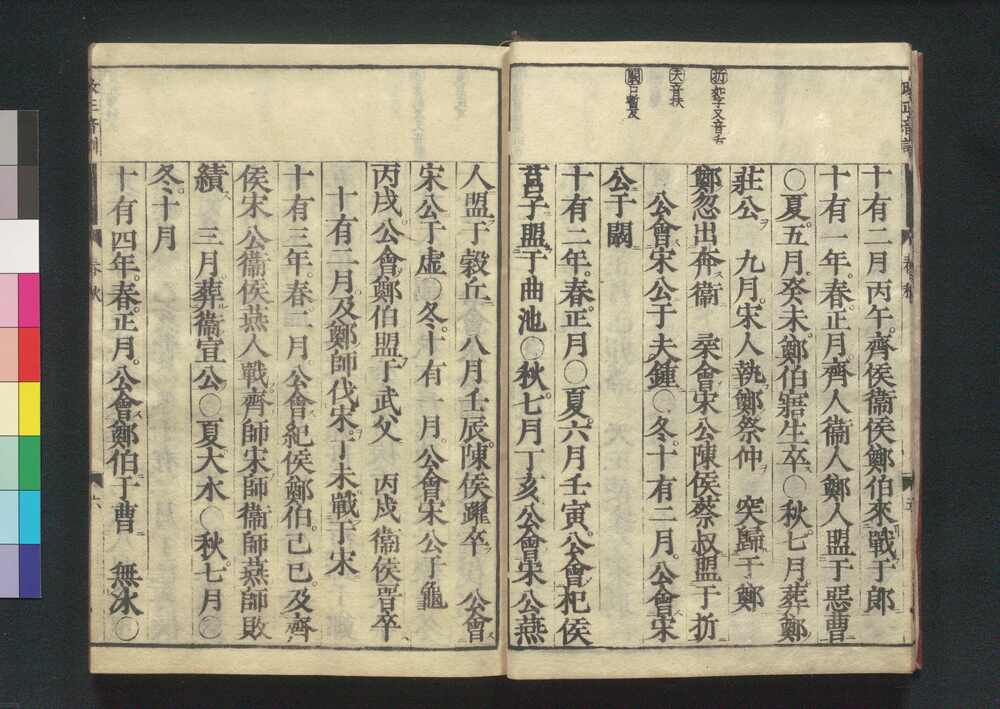 十有二月丙午。齊侯衞侯鄭伯來戰于郎
十有一年。春。正月。齊人衞人鄭人盟于惡曹
○夏。五月。癸未。鄭伯寤生卒○秋七月葬鄭
莊公　九月。宋人執鄭祭仲　突歸于鄭
鄭忽出奔衞　柔會宋公陳侯蔡叔盟于折
公會宋公于夫鍾○冬。十有二月。公會宋
公于闞
十有二年。春。正月○夏。六月壬寅。公會杞侯
莒子盟于曲池○秋。七月丁亥。公會宋公燕
折
夫音扶
闞口暫反
人盟于穀丘　八月壬辰。陳侯躍卒　公會
宋公于虛○冬。十有一月。公會宋公于龜
丙戌。公會鄭伯盟于武父　丙戌衞侯晋卒
十有二月。及鄭師伐宋。丁未戰于宋
十有三年。春。二月。公會紀侯鄭伯。己巳。及齊
侯宋公衞侯燕人戰。齊師宋師衞師燕師敗
績　三月。葬衞宣公○夏大水○秋。七月○
冬。十月
十有四年。春。正月。公會鄭伯于曹　無冰○
春秋
六